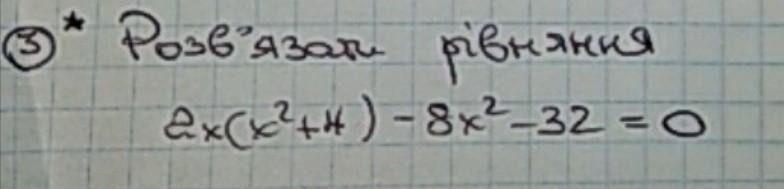 ③* Розв'язати рівняння
2x(x²+4) - 8x² - 32 = 0